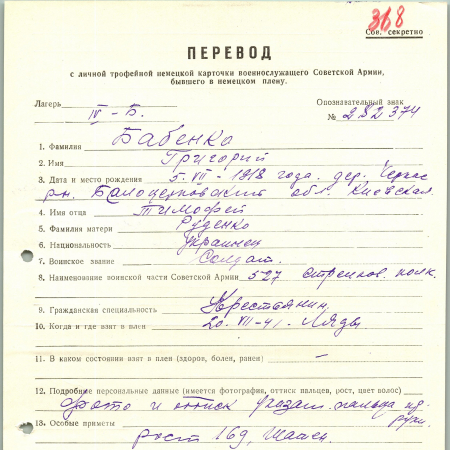 368
Сов. секретно
ПЕРЕВОД
с личной трофейной немецкой карточки военнослужащего Советской Армии,
бывшего в немецком плену.
Лагерь IV - Б. Опознавательный знак
№ 282374
1. Фамилия Бабенко
2. Имя Григорий
3. Дата и место рождения 5. VII - 1918 года. дер. Черкас
рн. Белоцерковский обл. Киевская
4. Имя отца Тимофей
5. Фамилия матери Руденко
6. Национальность Украинец
7. Воинское звание Солдат.
8. Наименование воинской части Советской Армии 527 стрелков. полк.
9. Гражданская специальность Крестьянин
10. Когда и где взят в плен 20. VII - 41. Ляды
11. В каком состоянии взят в плен (здоров, болен, ранен) —
12. Подробные персональные данные (имеется фотография, оттиск пальцев, рост, цвет волос)
Фото и оттиск указат. пальца пр. руки.
13. Особые приметы рост 169,